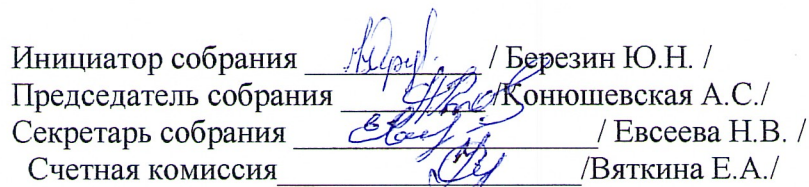 Инициатор собрания / Березин Ю.Н. /
Председатель собрания /Конюшевская А.С./
Секретарь собрания / Евсеева Н.В. /
Счетная комиссия /Вяткина Е.А./